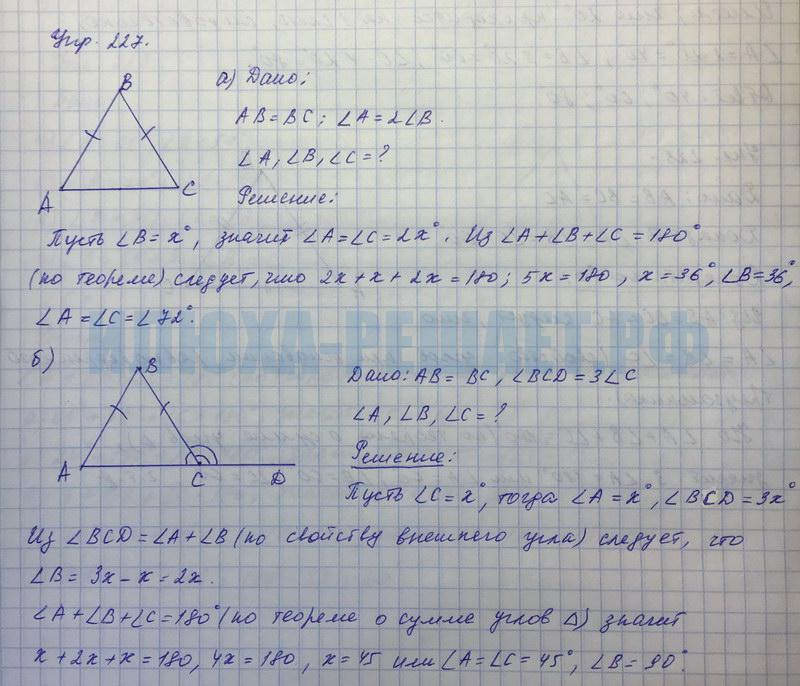 Упр. 227.
B
A
C
а) Дано:
AB = BC; ∠A = 2∠B.
∠A, ∠B, ∠C = ?
Решение:
Пусть ∠B = x°, значит ∠A = ∠C = 2x°. Из ∠A + ∠B + ∠C = 180°
(по теореме) следует, что 2x + x + 2x = 180; 5x = 180, x = 36°, ∠B = 36°,
∠A = ∠C = ∠72°.
ИПОХА-РЕШАЕТ.РФ
б)
B
A
C
D
Дано: AB = BC, ∠BCD = 3∠C
∠A, ∠B, ∠C = ?
Решение:
Пусть ∠C = x°, тогда ∠A = x°, ∠BCD = 3x°
Из ∠BCD = ∠A + ∠B (по свойству внешнего угла) следует, что
∠B = 3x - x = 2x.
∠A + ∠B + ∠C = 180° (по теореме о сумме углов Δ) значит
x + 2x + x = 180, 4x = 180, x = 45 или ∠A = ∠C = 45°, ∠B = 90°.